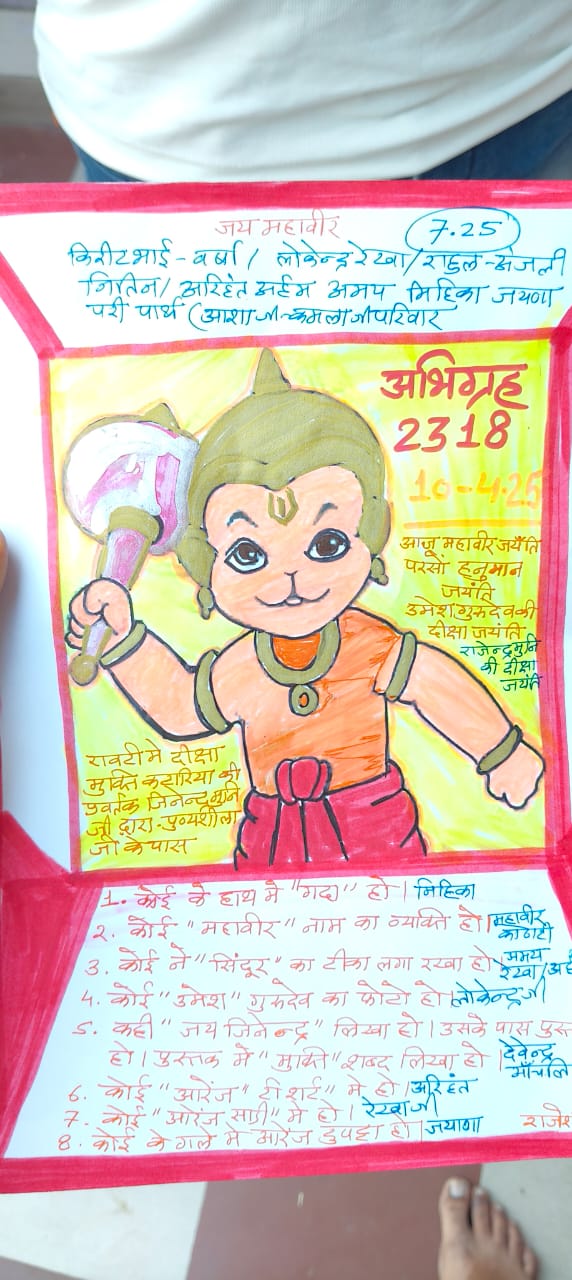 जय महावीर
7.25
किरीटभाई - वर्षा / लोकेन्द्र रेखा / राहुल - अंजली
नितिन / अरिहंत अर्हम अमय मिहिका जयणा
परी पार्थ (आशा जी - कमला जी परिवार
अभिग्रह
2318
10-4-25
आज महावीर जयंति
परसों हनुमान
जयंति
उमेश गुरुदेव की
दीक्षा जयंति
राजेन्द्र मुनि
की दीक्षा
जयंति
रावटी मे दीक्षा
मुक्ति कटारिया की
प्रवर्तक जिनेन्द्र मुनि
जी द्वारा - पुण्यशीला
जी के पास
1. कोई के हाथ मे "गदा" हो। मिहिका
2. कोई "महावीर" नाम का व्यक्ति हो। महावीर
3. कोई ने "सिंदूर" का टीका लगा रखा हो
रेखा
4. कोई "उमेश" गुरुदेव का फोटो हो। लोकेन्द्र जी
5. कही "जय जिनेन्द्र" लिखा हो। उसके पास पुस्त
हो। पुस्तक मे "मुक्ति" शब्द लिखा हो। देवेन्द्र
6. कोई "आरेंज" टी शर्ट" मे हो। अरिहंत
7. कोई "ओरेंज साडी" मे हो। रेखा जी
8. कोई के गले मे आरेंज दुपट्टा हो। जयाणा
राजेश